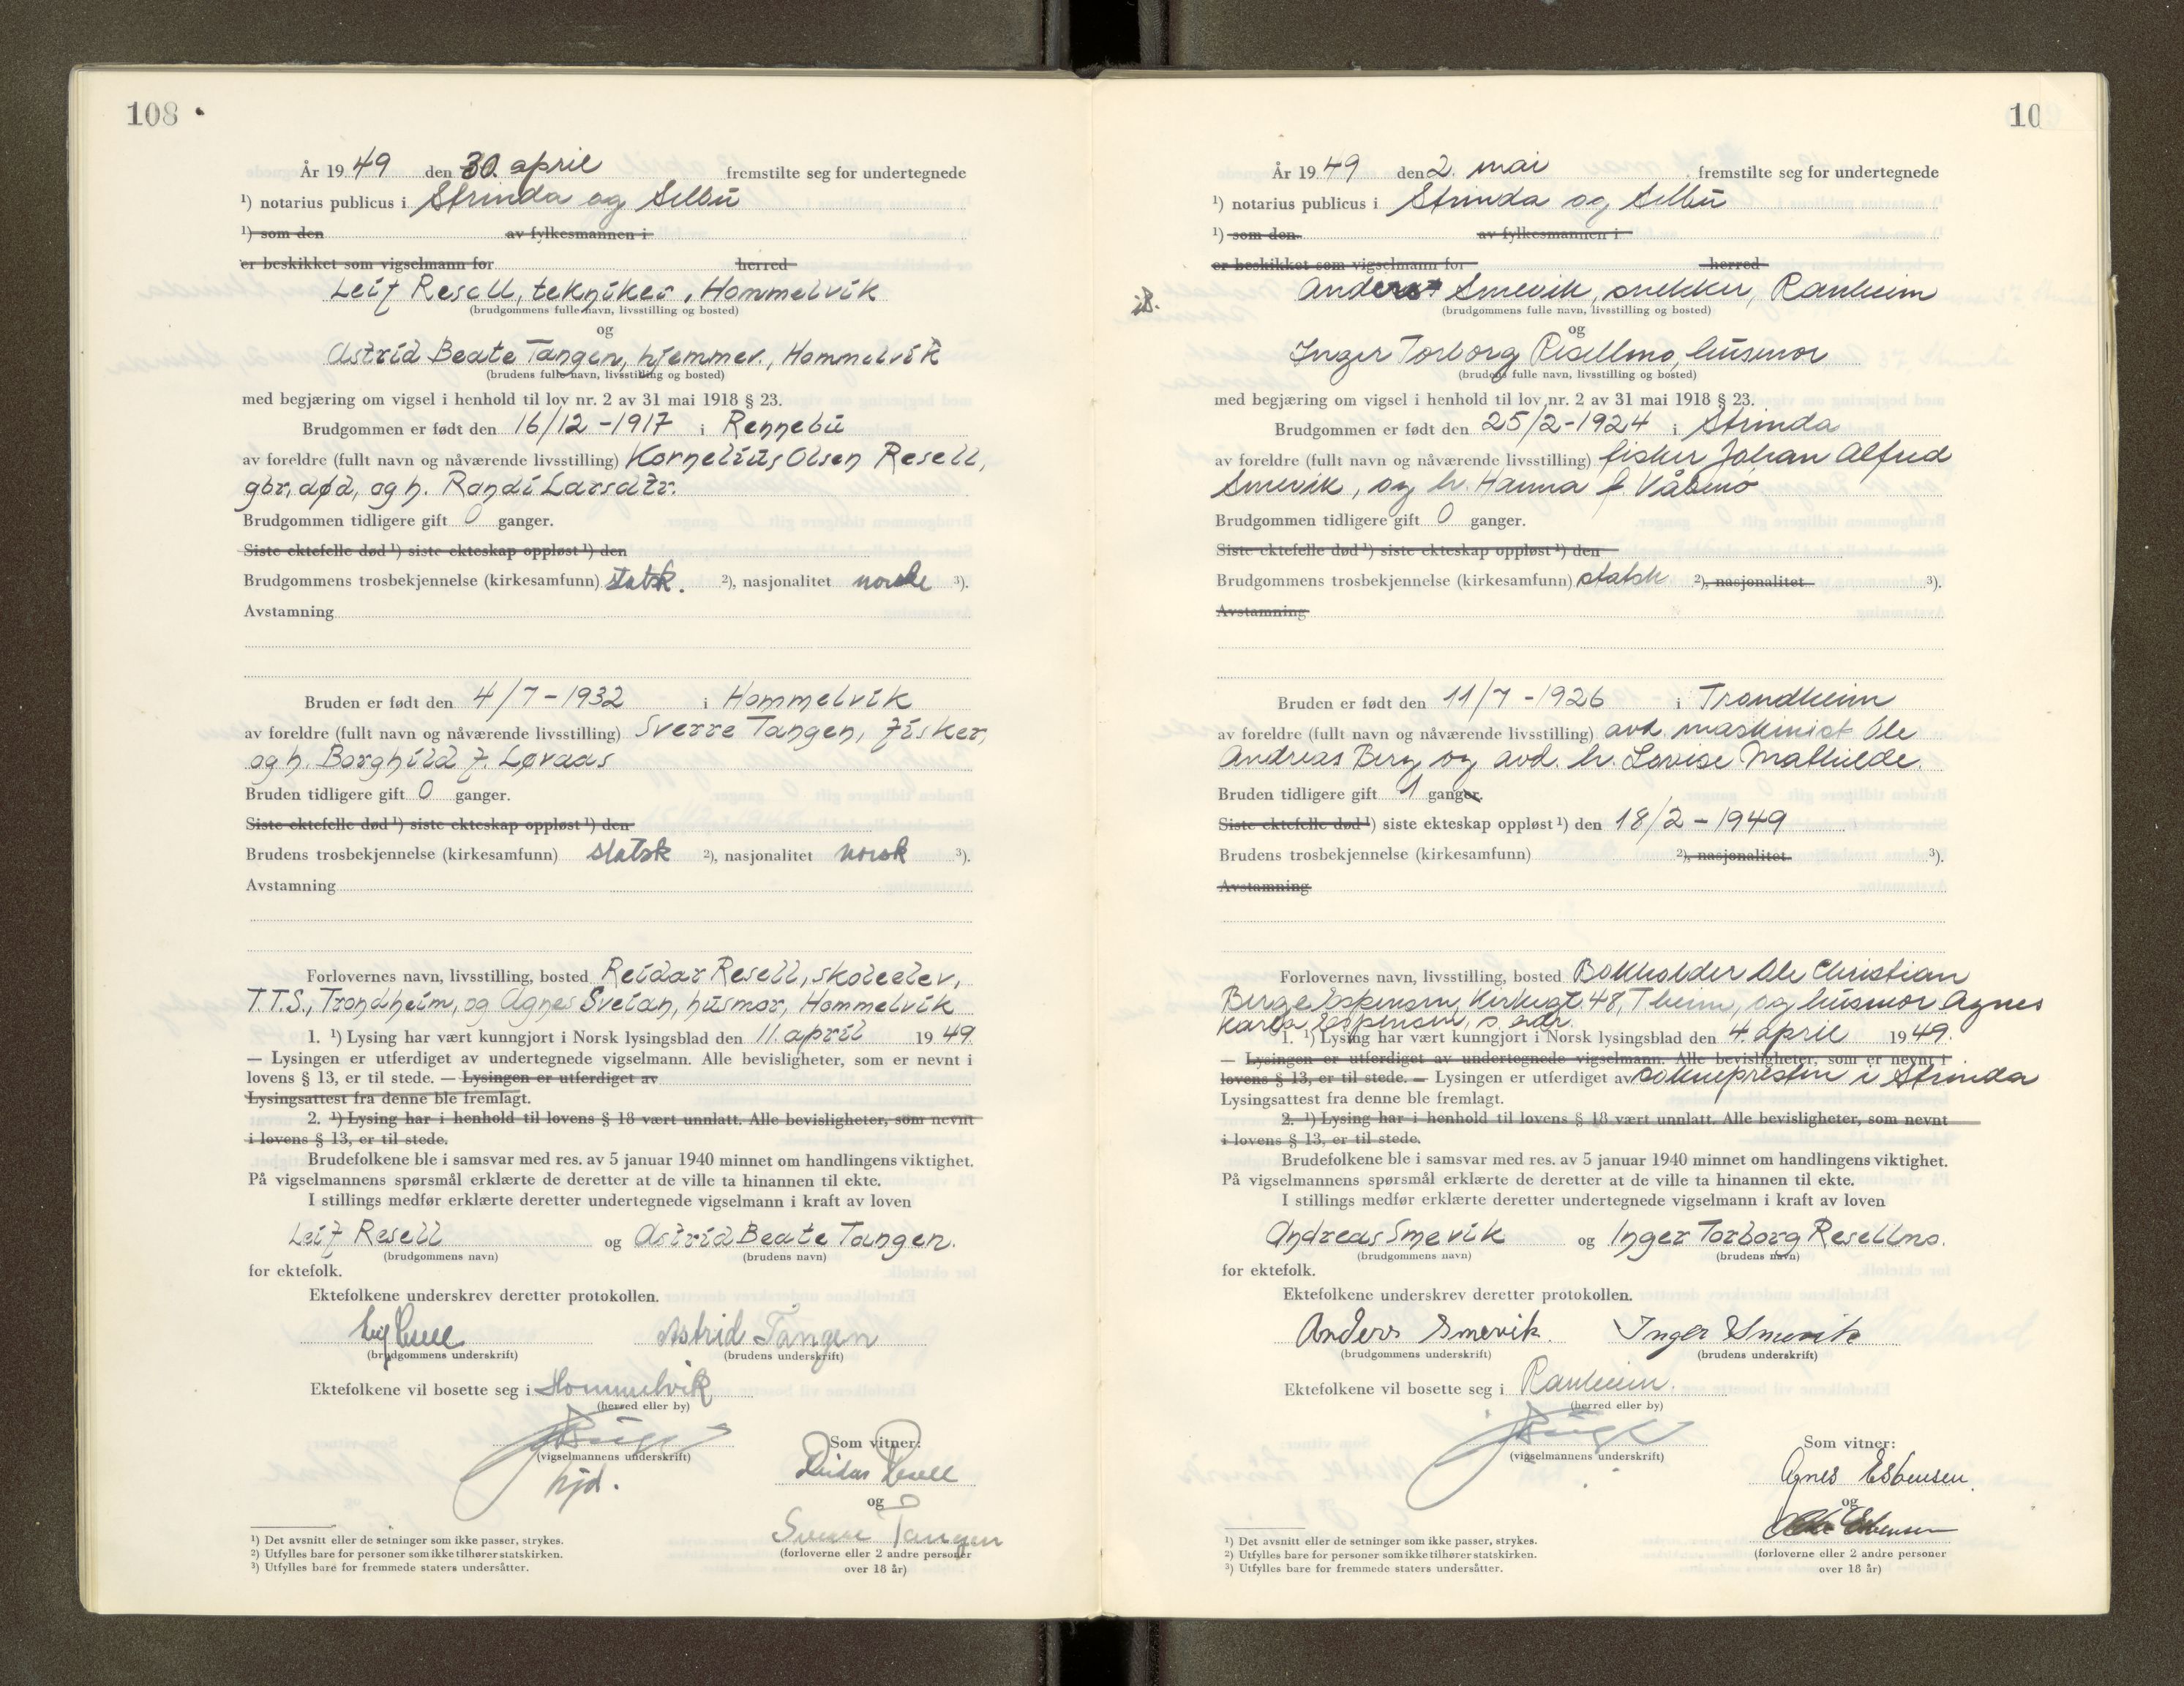 108
År 1949 den 30. april fremstilte seg for undertegnede
¹) notarius publicus i Strinda og Selbu
¹) som den av fylkesmannen i
er beskikket som vigselmann for herred
Leif Resell, tekniker, Hommelvik
(brudgommens fulle navn, livsstilling og bosted)
og
Astrid Beate Tangen, hjemmev., Hommelvik
(brudens fulle navn, livsstilling og bosted)
med begjæring om vigsel i henhold til lov nr. 2 av 31 mai 1918 § 23.
Brudgommen er født den 16/12-1917 i Rennebu
av foreldre (fullt navn og nåværende livsstilling) Kornelius Olsen Resell,
gbr, død, og h. Randi Larsdtr.
Brudgommen tidligere gift 0 ganger.
Siste ektefelle død ¹) siste ekteskap oppløst ¹) den
Brudgommens trosbekjennelse (kirkesamfunn) statsk. ²), nasjonalitet norske ³).
Avstamning
Bruden er født den 4/7-1932 i Hommelvik
av foreldre (fullt navn og nåværende livsstilling) Sverre Tangen, fisker,
og h. Borghild f. Løvaas
Bruden tidligere gift 0 ganger.
Siste ektefelle død ¹) siste ekteskap oppløst ¹) den
Brudens trosbekjennelse (kirkesamfunn) statsk ²), nasjonalitet norsk ³).
Avstamning
Forlovernes navn, livsstilling, bosted Reidar Resell, skoleelev,
T.T.S., Trondheim, og Agnes Sveian, husmor, Hommelvik
1. ¹) Lysing har vært kunngjort i Norsk lysingsblad den 11. april 1949
— Lysingen er utferdiget av undertegnede vigselmann. Alle bevisligheter, som er nevnt i
lovens § 13, er til stede. — Lysingen er utferdiget av
Lysingsattest fra denne ble fremlagt.
2. ¹) Lysing har i henhold til lovens § 18 vært unnlatt. Alle bevisligheter, som nevnt
i lovens § 13, er til stede.
Brudefolkene ble i samsvar med res. av 5 januar 1940 minnet om handlingens viktighet.
På vigselmannens spørsmål erklærte de deretter at de ville ta hinannen til ekte.
I stillings medfør erklærte deretter undertegnede vigselmann i kraft av loven
Leif Resell og Astrid Beate Tangen.
(brudgommens navn) (brudens navn)
for ektefolk.
Ektefolkene underskrev deretter protokollen.
Leif Resell Astrid Tangen
(brudgommens underskrift) (brudens underskrift)
Ektefolkene vil bosette seg i Hommelvik
(herred eller by)
(vigselmannens underskrift)
hjd.
Som vitner:
Reidar Resell
og
Sverre Tangen
(forloverne eller 2 andre personer
over 18 år)
¹) Det avsnitt eller de setninger som ikke passer, strykes.
²) Utfylles bare for personer som ikke tilhører statskirken.
³) Utfylles bare for fremmede staters undersåtter.
10
År 1949 den 2. mai fremstilte seg for undertegnede
¹) notarius publicus i Strinda og Selbu
¹) som den av fylkesmannen i
er beskikket som vigselmann for herred
Anders Smevik, snekker, Ranheim
(brudgommens fulle navn, livsstilling og bosted)
og
Inger Torborg Resellmo, husmor
(brudens fulle navn, livsstilling og bosted)
med begjæring om vigsel i henhold til lov nr. 2 av 31 mai 1918 § 23.
Brudgommen er født den 25/2-1924 i Strinda
av foreldre (fullt navn og nåværende livsstilling) fisker Johan Alfred
Smevik, og h. Hanna f. Våbenø
Brudgommen tidligere gift 0 ganger.
Siste ektefelle død ¹) siste ekteskap oppløst ¹) den
Brudgommens trosbekjennelse (kirkesamfunn) statsk ²), nasjonalitet ³).
Avstamning
Bruden er født den 11/7-1926 i Trondheim
av foreldre (fullt navn og nåværende livsstilling) avd. maskinist Ole
Andreas Berg og avd. h. Lovise Mathilde.
Bruden tidligere gift 1 ganger.
Siste ektefelle død ¹) siste ekteskap oppløst ¹) den 18/2-1949
Brudens trosbekjennelse (kirkesamfunn) ²), nasjonalitet ³).
Avstamning
Forlovernes navn, livsstilling, bosted Bokholder Ole Christian
Birge Espensen, Kirkegt 48, Theim, og husmor Agnes
Karla Espensen, s. adr.
1. ¹) Lysing har vært kunngjort i Norsk lysingsblad den 4. april 1949.
— Lysingen er utferdiget av undertegnede vigselmann. Alle bevisligheter, som er nevnt i
lovens § 13, er til stede. — Lysingen er utferdiget av soknepresten i Strinda
Lysingsattest fra denne ble fremlagt.
2. ¹) Lysing har i henhold til lovens § 18 vært unnlatt. Alle bevisligheter, som nevnt
i lovens § 13, er til stede.
Brudefolkene ble i samsvar med res. av 5 januar 1940 minnet om handlingens viktighet.
På vigselmannens spørsmål erklærte de deretter at de ville ta hinannen til ekte.
I stillings medfør erklærte deretter undertegnede vigselmann i kraft av loven
Andreas Smevik og Inger Torborg Resellmo.
(brudgommens navn) (brudens navn)
for ektefolk.
Ektefolkene underskrev deretter protokollen.
Anders Smevik. Inger Smevik
(brudgommens underskrift) (brudens underskrift)
Ektefolkene vil bosette seg i Ranheim.
(herred eller by)
(vigselmannens underskrift)
Som vitner:
Agnes Esbensen.
og
Esbensen
(forloverne eller 2 andre personer
over 18 år)
¹) Det avsnitt eller de setninger som ikke passer, strykes.
²) Utfylles bare for personer som ikke tilhører statskirken.
³) Utfylles bare for fremmede staters undersåtter.